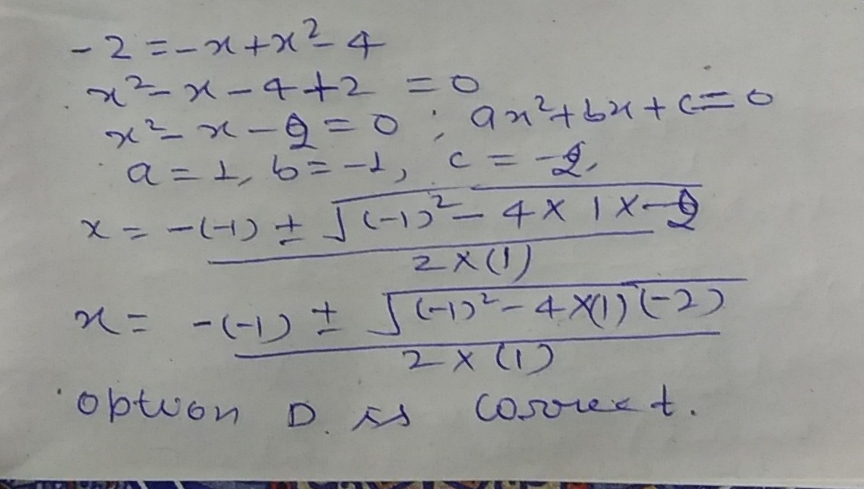 -2 = -x + x² - 4
x² - x - 4 + 2 = 0
x² - x - 2 = 0 ; ax² + bx + c = 0
a = 1, b = -1, c = -2,
x = -(-1) ± √(-1)² - 4 × 1 × -2
2 × (1)
x = -(-1) ± √(-1)² - 4 × (1) (-2)
2 × (1)
option D. is correct.